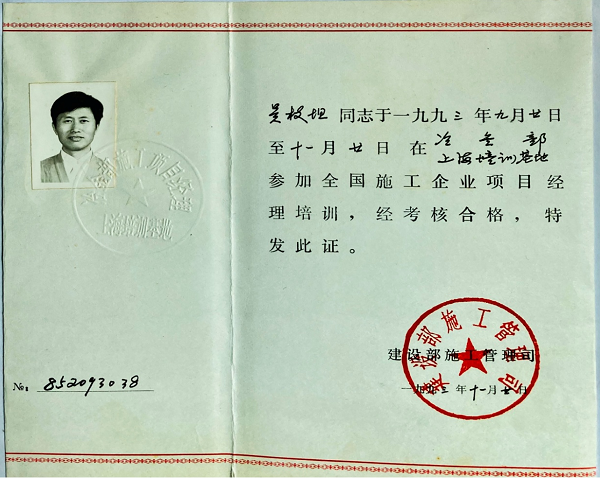 同志于一九九三年九月廿日
至十一月廿日在冶金部
上海培训基地
参加全国施工企业项目经
理培训，经考核合格，特
发此证。
建设部施工管理司
一九九三年十一月廿日
建设部施工管理司
上海培训基地
№: 852093038